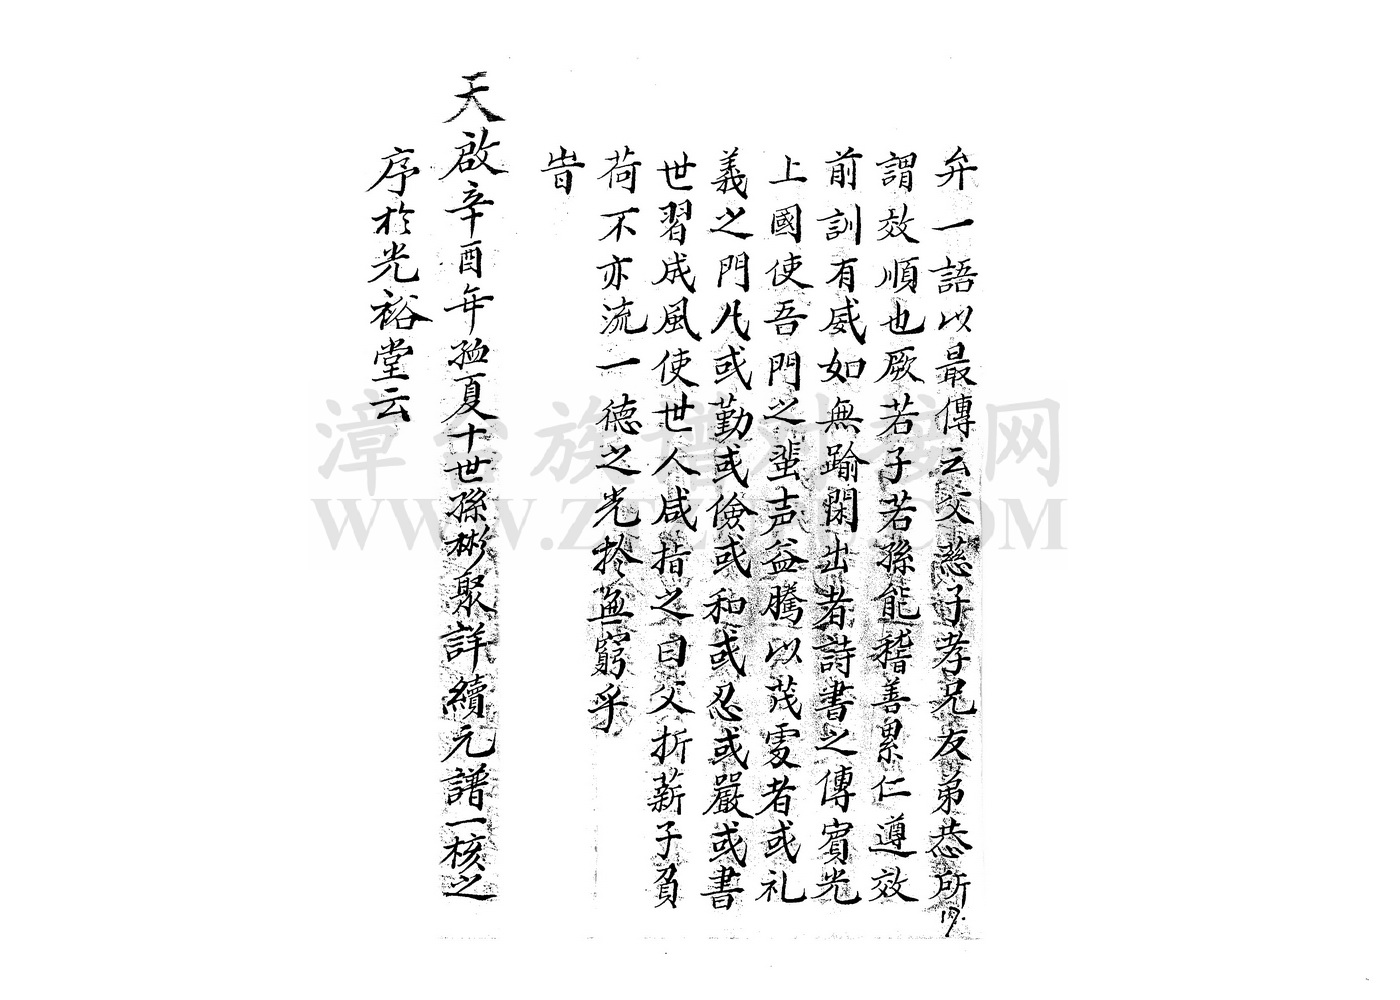 弁一語以最傳云父慈子孝兄友弟恭所
謂效順也厥若子若孫能稽善累仁遵效
前訓有威如無踰閑出者詩書之傳賓光
上國使吾門之蜚声益騰以茂处者或礼
義之門凡或勤或儉或和或忍或嚴或書
世習成風使世人咸指之曰父折薪子負
荷不亦流一德之光於無窮乎
旹
天啟辛酉年孟夏十世孫彬聚詳續元譜一核之
序於光裕堂云
17.
漳台族谱对接网